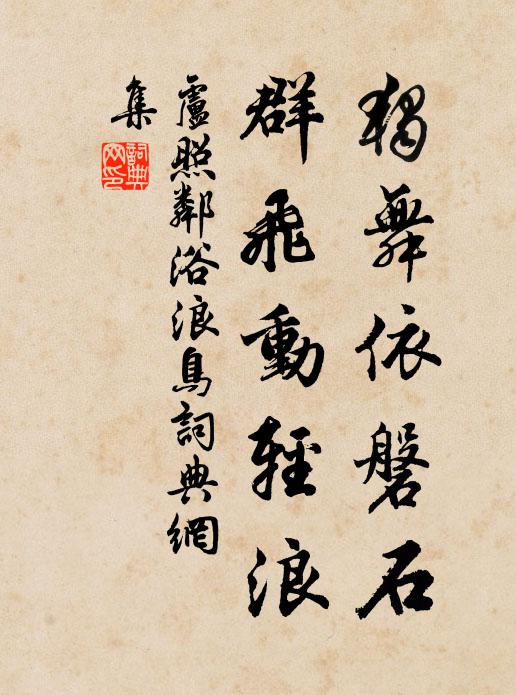 獨舞依磐石
群飛動輕浪
盧照鄰浴浪鳥詞典網
集
詞典
网印